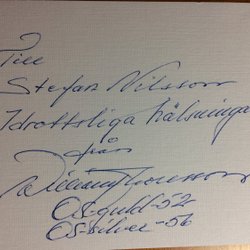 Till
Stefan Nilsson
Idrottsliga hälsninga
från
OS-guld-52
OS silver-56